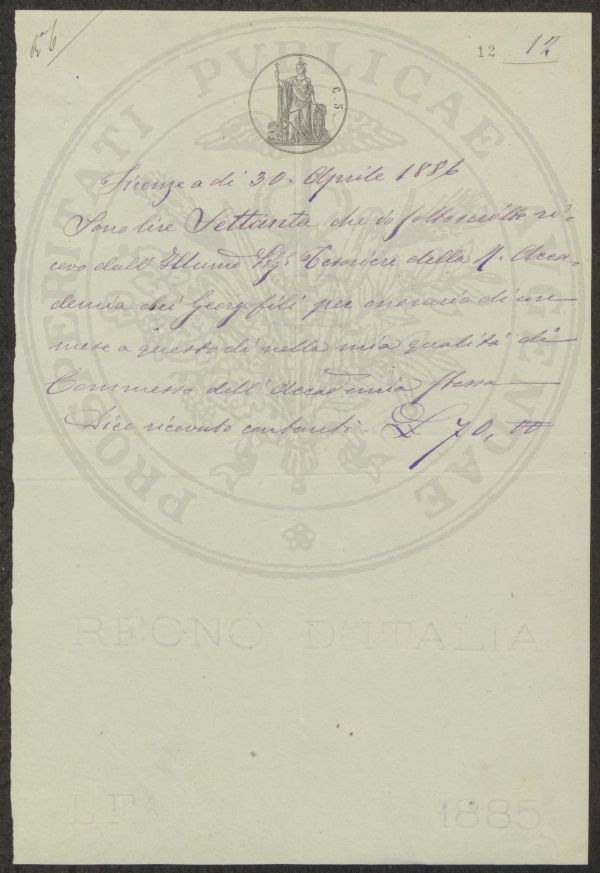 12 12
C. 5.
PROSPERITATI PVBLICAE AVGENDAE
Firenze a dì 30. Aprile 1886
Sono lire Settanta che io sottoscritto ri-
cevo dall' Illumo Sigr Tesoriere della R. Acca-
demia dei Georgofili per onorario di un
mese a questo dì nella mia qualità di
Commesso dell' Accademia stessa
Dico ricevuto contanti £ 70, 00
REGNO D'ITALIA
LF 1885